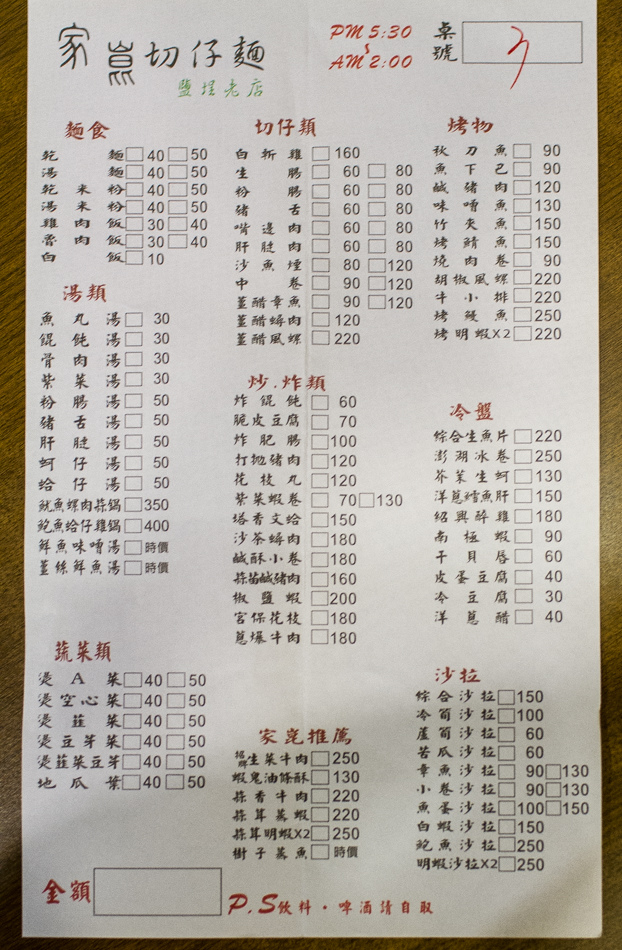 家崑切仔麵
鹽埕老店
PM 5:30
~
AM 2:00
桌號
麵食
乾麵 40 50
湯麵 40 50
乾米粉 40 50
湯米粉 40 50
雞肉飯 30 40
魯肉飯 30 40
白飯 10
湯類
魚丸湯 30
餛飩湯 30
骨肉湯 30
紫菜湯 30
粉腸湯 50
豬舌湯 50
肝脡湯 50
蚵仔湯 50
蛤仔湯 50
魷魚螺肉蒜鍋 350
鮑魚蛤仔雞鍋 400
鮮魚味噌湯 時價
薑絲鮮魚湯 時價
蔬菜類
燙A菜 40 50
燙空心菜 40 50
燙韮菜 40 50
燙豆芽菜 40 50
燙韮菜豆芽 40 50
地瓜葉 40 50
切仔類
白斬雞 160
生腸 60 80
粉腸 60 80
豬舌 60 80
嘴邊肉 60 80
肝脡肉 60 80
沙魚煙 80 120
中卷 90 120
薑醋章魚 90 120
薑醋蟳肉 120
薑醋風螺 220
炒.炸類
炸餛飩 60
脆皮豆腐 70
炸肥腸 100
打拋豬肉 120
花枝丸 120
紫菜蝦卷 70 130
塔香文蛤 150
沙茶蟳肉 180
鹹酥小卷 180
蒜苗鹹豬肉 160
椒鹽蝦 200
宮保花枝 180
蔥爆牛肉 180
家崑推薦
招牌生菜牛肉 250
蝦鬼油條酥 130
蒜香牛肉 220
蒜茸蒸蝦 220
蒜茸明蝦X2 250
樹子蒸魚 時價
烤物
秋刀魚 90
魚下巴 90
鹹豬肉 120
味噌魚 130
竹夾魚 150
烤鯖魚 150
燒肉卷 90
胡椒風螺 220
牛小排 220
烤鰻魚 250
烤明蝦X2 220
冷盤
綜合生魚片 220
澎湖冰卷 250
芥茉生蚵 130
洋蔥鱈魚肝 150
紹興醉雞 180
南極蝦 90
干貝唇 60
皮蛋豆腐 40
冷豆腐 30
洋蔥醋 40
沙拉
綜合沙拉 150
冷筍沙拉 100
蘆筍沙拉 60
苦瓜沙拉 60
章魚沙拉 90 130
小卷沙拉 90 130
魚蛋沙拉 100 150
白蝦沙拉 150
鮑魚沙拉 250
明蝦沙拉X2 250
金額
P.S飲料·啤酒請自取